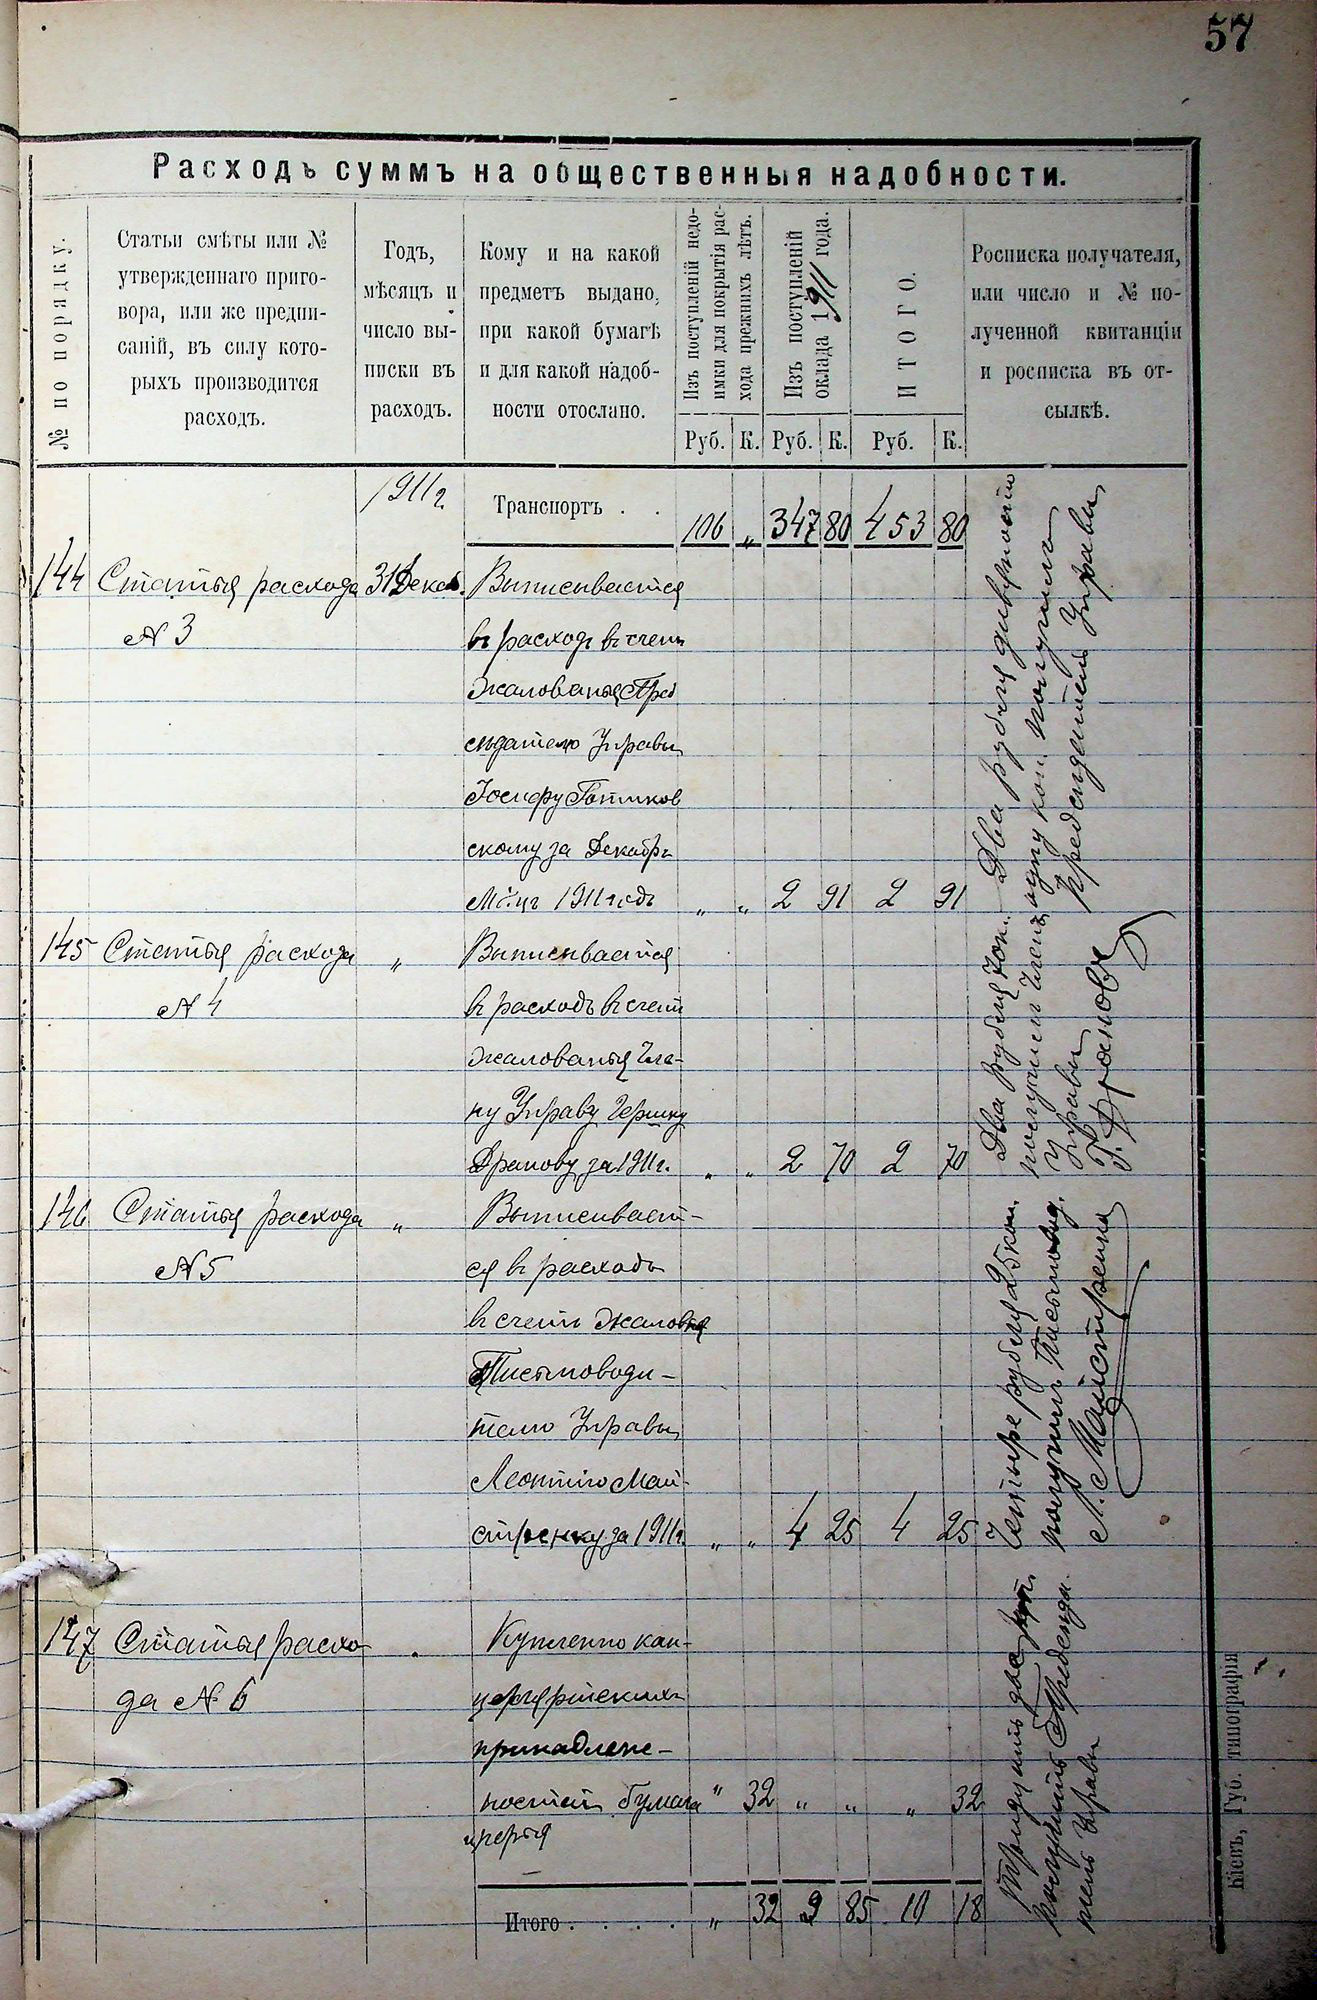 57
Расходъ суммъ на общественныя надобности.
№ по порядку.
Статьи смѣты или №
утвержденнаго приго-
вора, или же предпи-
саній, въ силу кото-
рыхъ производится
расходъ.
Годъ,
мѣсяцъ и
число вы-
писки въ
расходъ.
Кому и на какой
предметъ выдано,
при какой бумагѣ
и для какой надоб-
ности отослано.
Изъ поступленій недо-
имки для покрытія рас-
хода прежнихъ лѣтъ.
Изъ поступленій
оклада 1911 года.
ИТОГО.
Росписка получателя,
или число и № по-
лученной квитанціи
и росписка въ от-
сылкѣ.
Руб. К. Руб. К. Руб. К.
1911 г.
Транспортъ . . 106 „ 347 80 453 80
144 Статья расхода 31 Декаб. Выписывается
№ 3 въ расходъ въ счетъ
жалованья Пред
сѣдателю Управы
Іосифу Готлков
скому за Декабрь
М-цъ 1911 годъ „ „ 2 91 2 91
Два рубля девяносто
одну коп. получилъ
Предсѣдатель Управы
145 Статья расхода „ Выписывается
№ 4 въ расходъ въ счетъ
жалованья Чле-
ну Управы Гершку
Дранову за 1911 г. „ „ 2 70 2 70
Два рубля 70 к.
получилъ Членъ
Управы
Г. Драновъ
146 Статья расхода „ Выписывает-
№ 5 ся въ расходъ
въ счетъ жалов-ня
Письмоводи-
телю Управы
Леонтію Май-
стренку за 1911 г. „ „ 4 25 4 25
Четыре рубля 25 коп.
получилъ Письмовод.
Л. Майстренко
147 Статья расхо- Купленно кан-
да № 6 целярскихъ
принадлеже-
ностей бумага „ 32 „ „ „ 32
Тридцать две коп.
получилъ Предсѣда-
тель Управы
Итого . . . . „ 32 9 85 10 18
Кіевъ, Губ. типографія